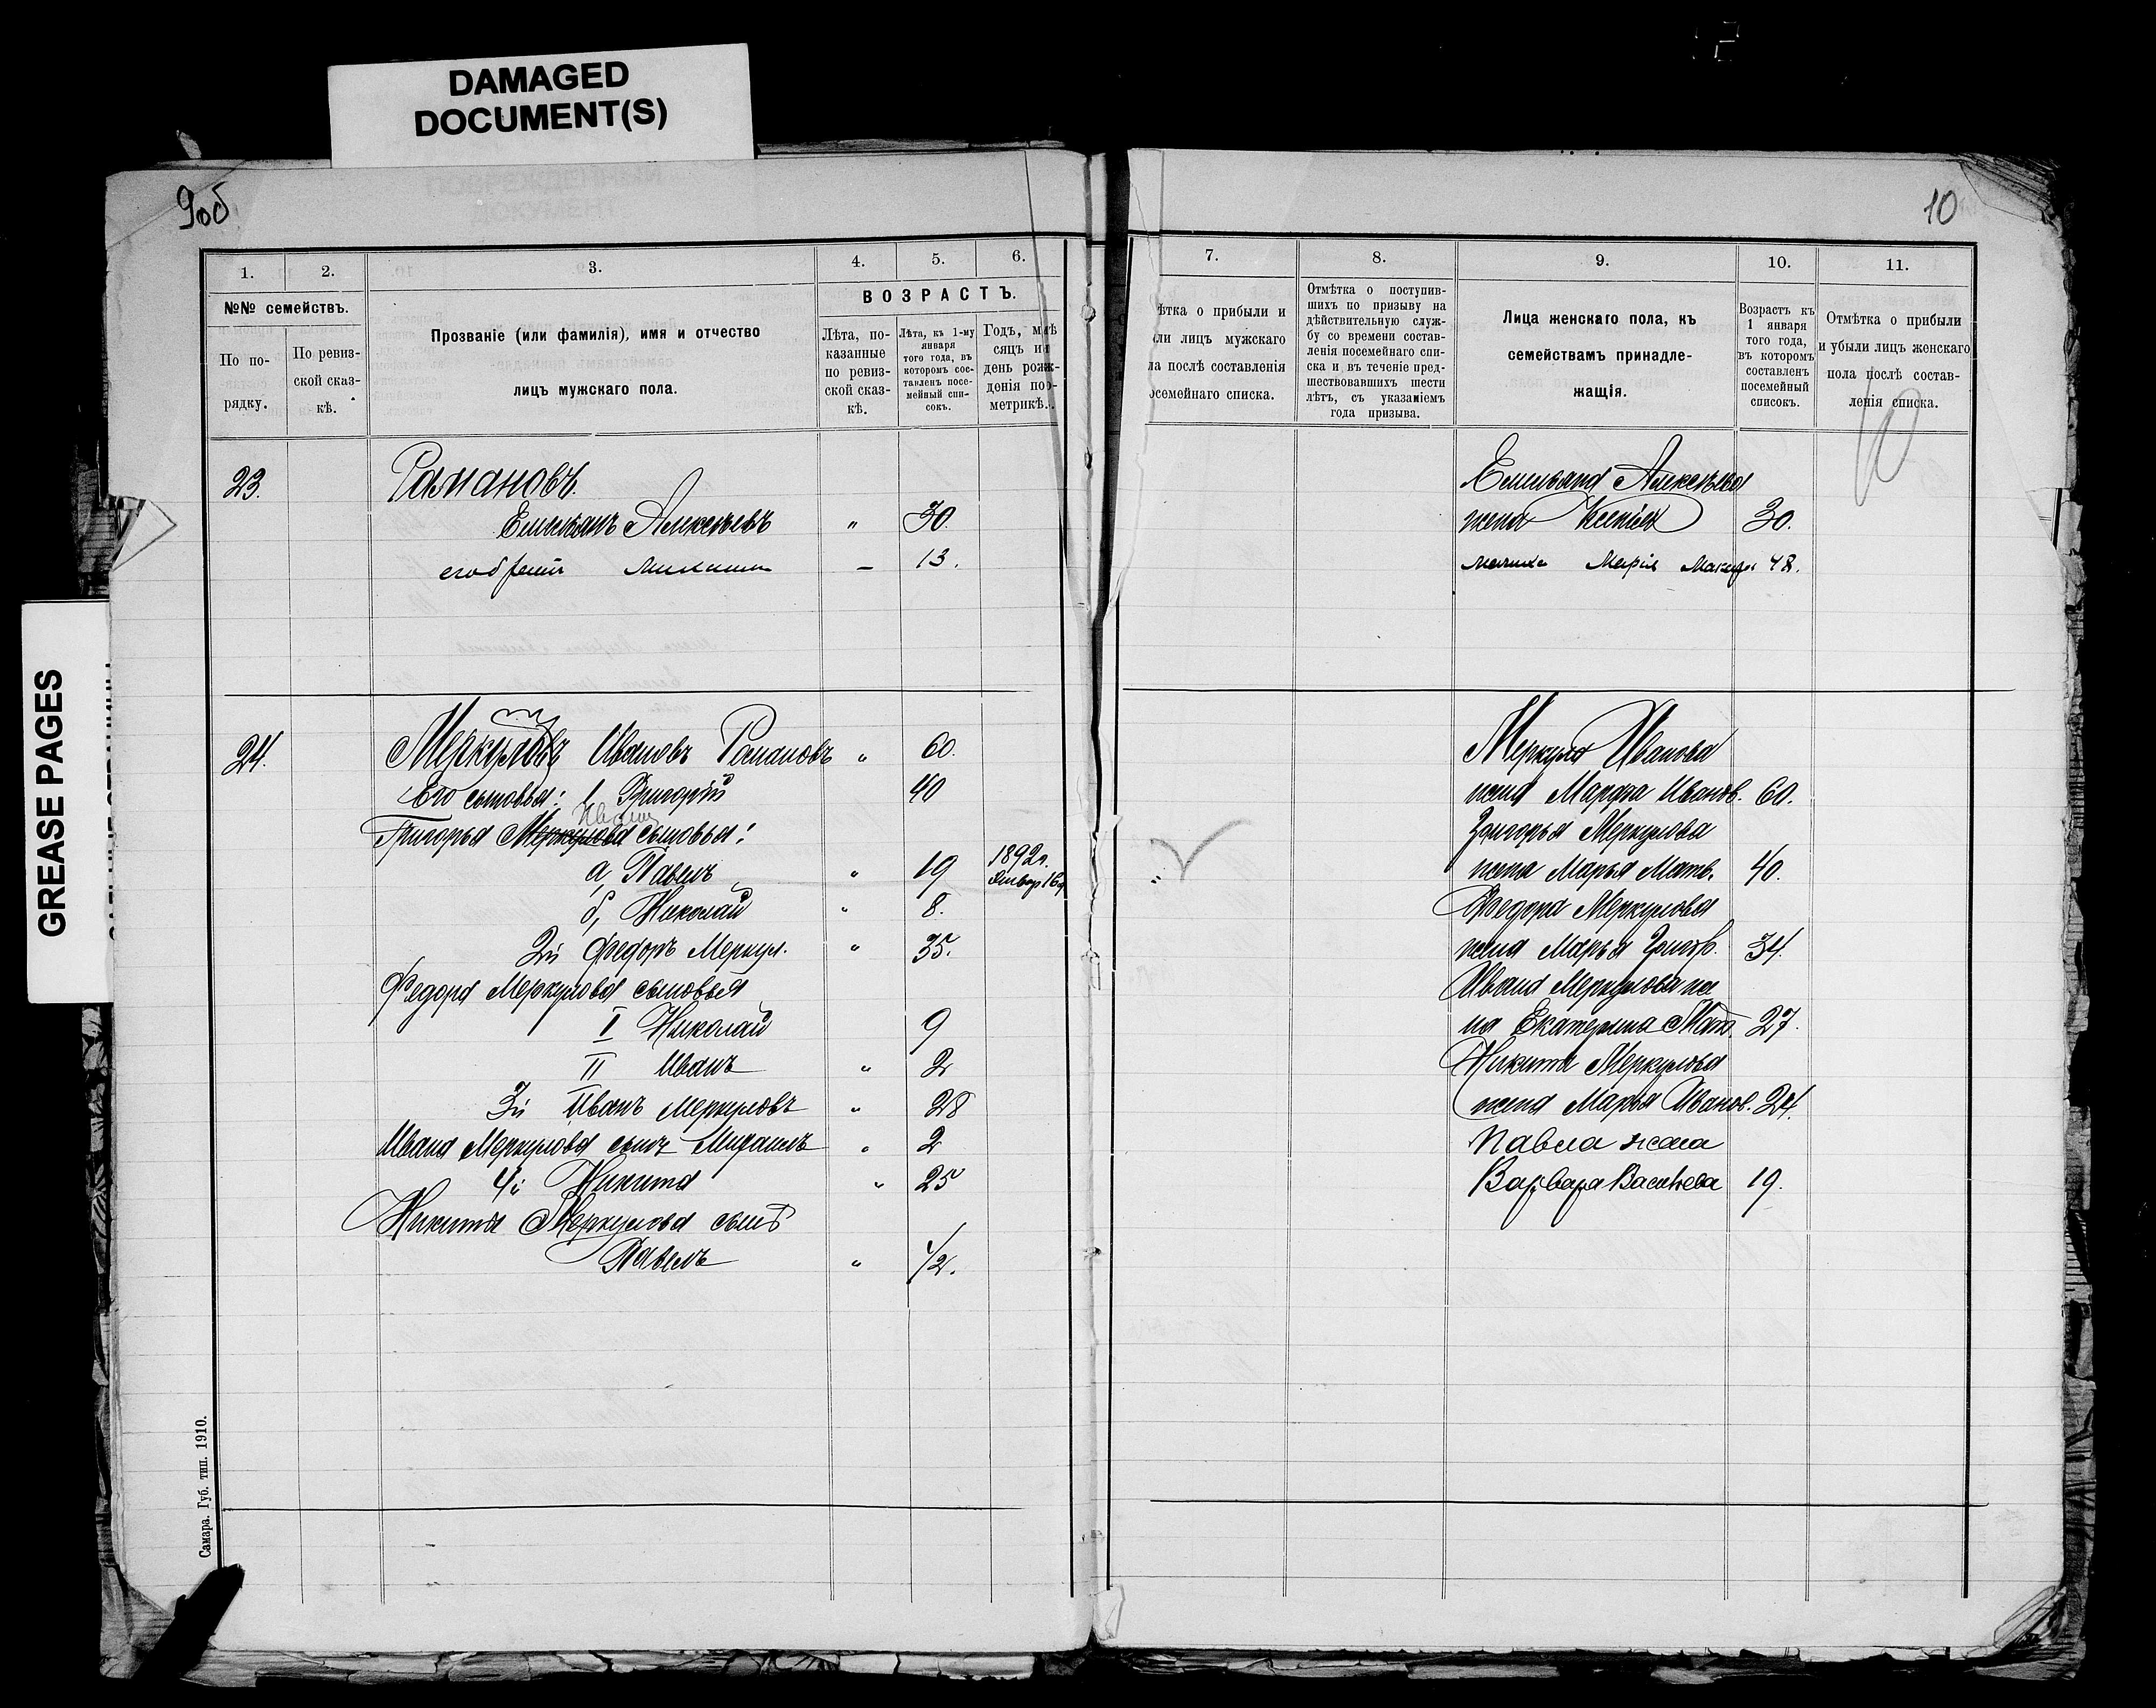 DAMAGED
DOCUMENT(S)
GREASE PAGES
9об
10
1. 2. 3. 4. 5. 6.
№№ семействъ.
По порядку.
По ревизской сказкѣ.
Прозваніе (или фамилія), имя и отчество
лицъ мужскаго пола.
ВОЗРАСТЪ.
Лѣта, показанные по ревизской сказкѣ.
Лѣта, къ 1-му января того года, въ которомъ составленъ посемейный списокъ.
Годъ, мѣсяцъ и день рожденія по метрикѣ.
23.
Романовъ.
Емельянъ Алексѣевъ " 30.
его братъ Михаилъ – 13.
24.
Меркуловъ Ивановъ Романовъ " 60.
Его сыновья: 1 Григорій 40
Григорья Меркулова сыновья:
а, Павелъ " 19 1892г. Январ 16д
б, Николай " 8.
2й Федоръ Меркул. " 35.
Федора Меркулова сыновья
I Николай 9
II Иванъ " 2
3й Иванъ Меркуловъ " 28
Ивана Меркулова сынъ Михаилъ " 2
4й Никита " 25
Никиты Меркулова сынъ
Павелъ " 1/2.
Самара. Губ. тип. 1910.
7. 8. 9. 10. 11.
ѣтка о прибыли и
ли лицъ мужскаго
ла послѣ составленія
осемейнаго списка.
Отмѣтка о поступившихъ по призыву на дѣйствительную службу со времени составленія посемейнаго списка и въ теченіе предшествовавшихъ шести лѣтъ, съ указаніемъ года призыва.
Лица женскаго пола, къ
семействамъ принадле-
жащія.
Возрастъ къ 1 января того года, въ которомъ составленъ посемейный списокъ.
Отмѣтка о прибыли и убыли лицъ женскаго пола послѣ составленія списка.
Емельяна Алексѣева
жена Ксенія 30.
мачиха Марія 48.
Меркула Иванова
жена Марфа Иванов. 60.
Григорья Меркулова
жена Марья Матв. 40.
Федора Меркулова
жена Марья Григор. 34.
Ивана Меркулова же
на Екатерина 27.
Никиты Меркулова
жена Марья Иванов. 24.
Павла жена
Варвара Васильева 19.